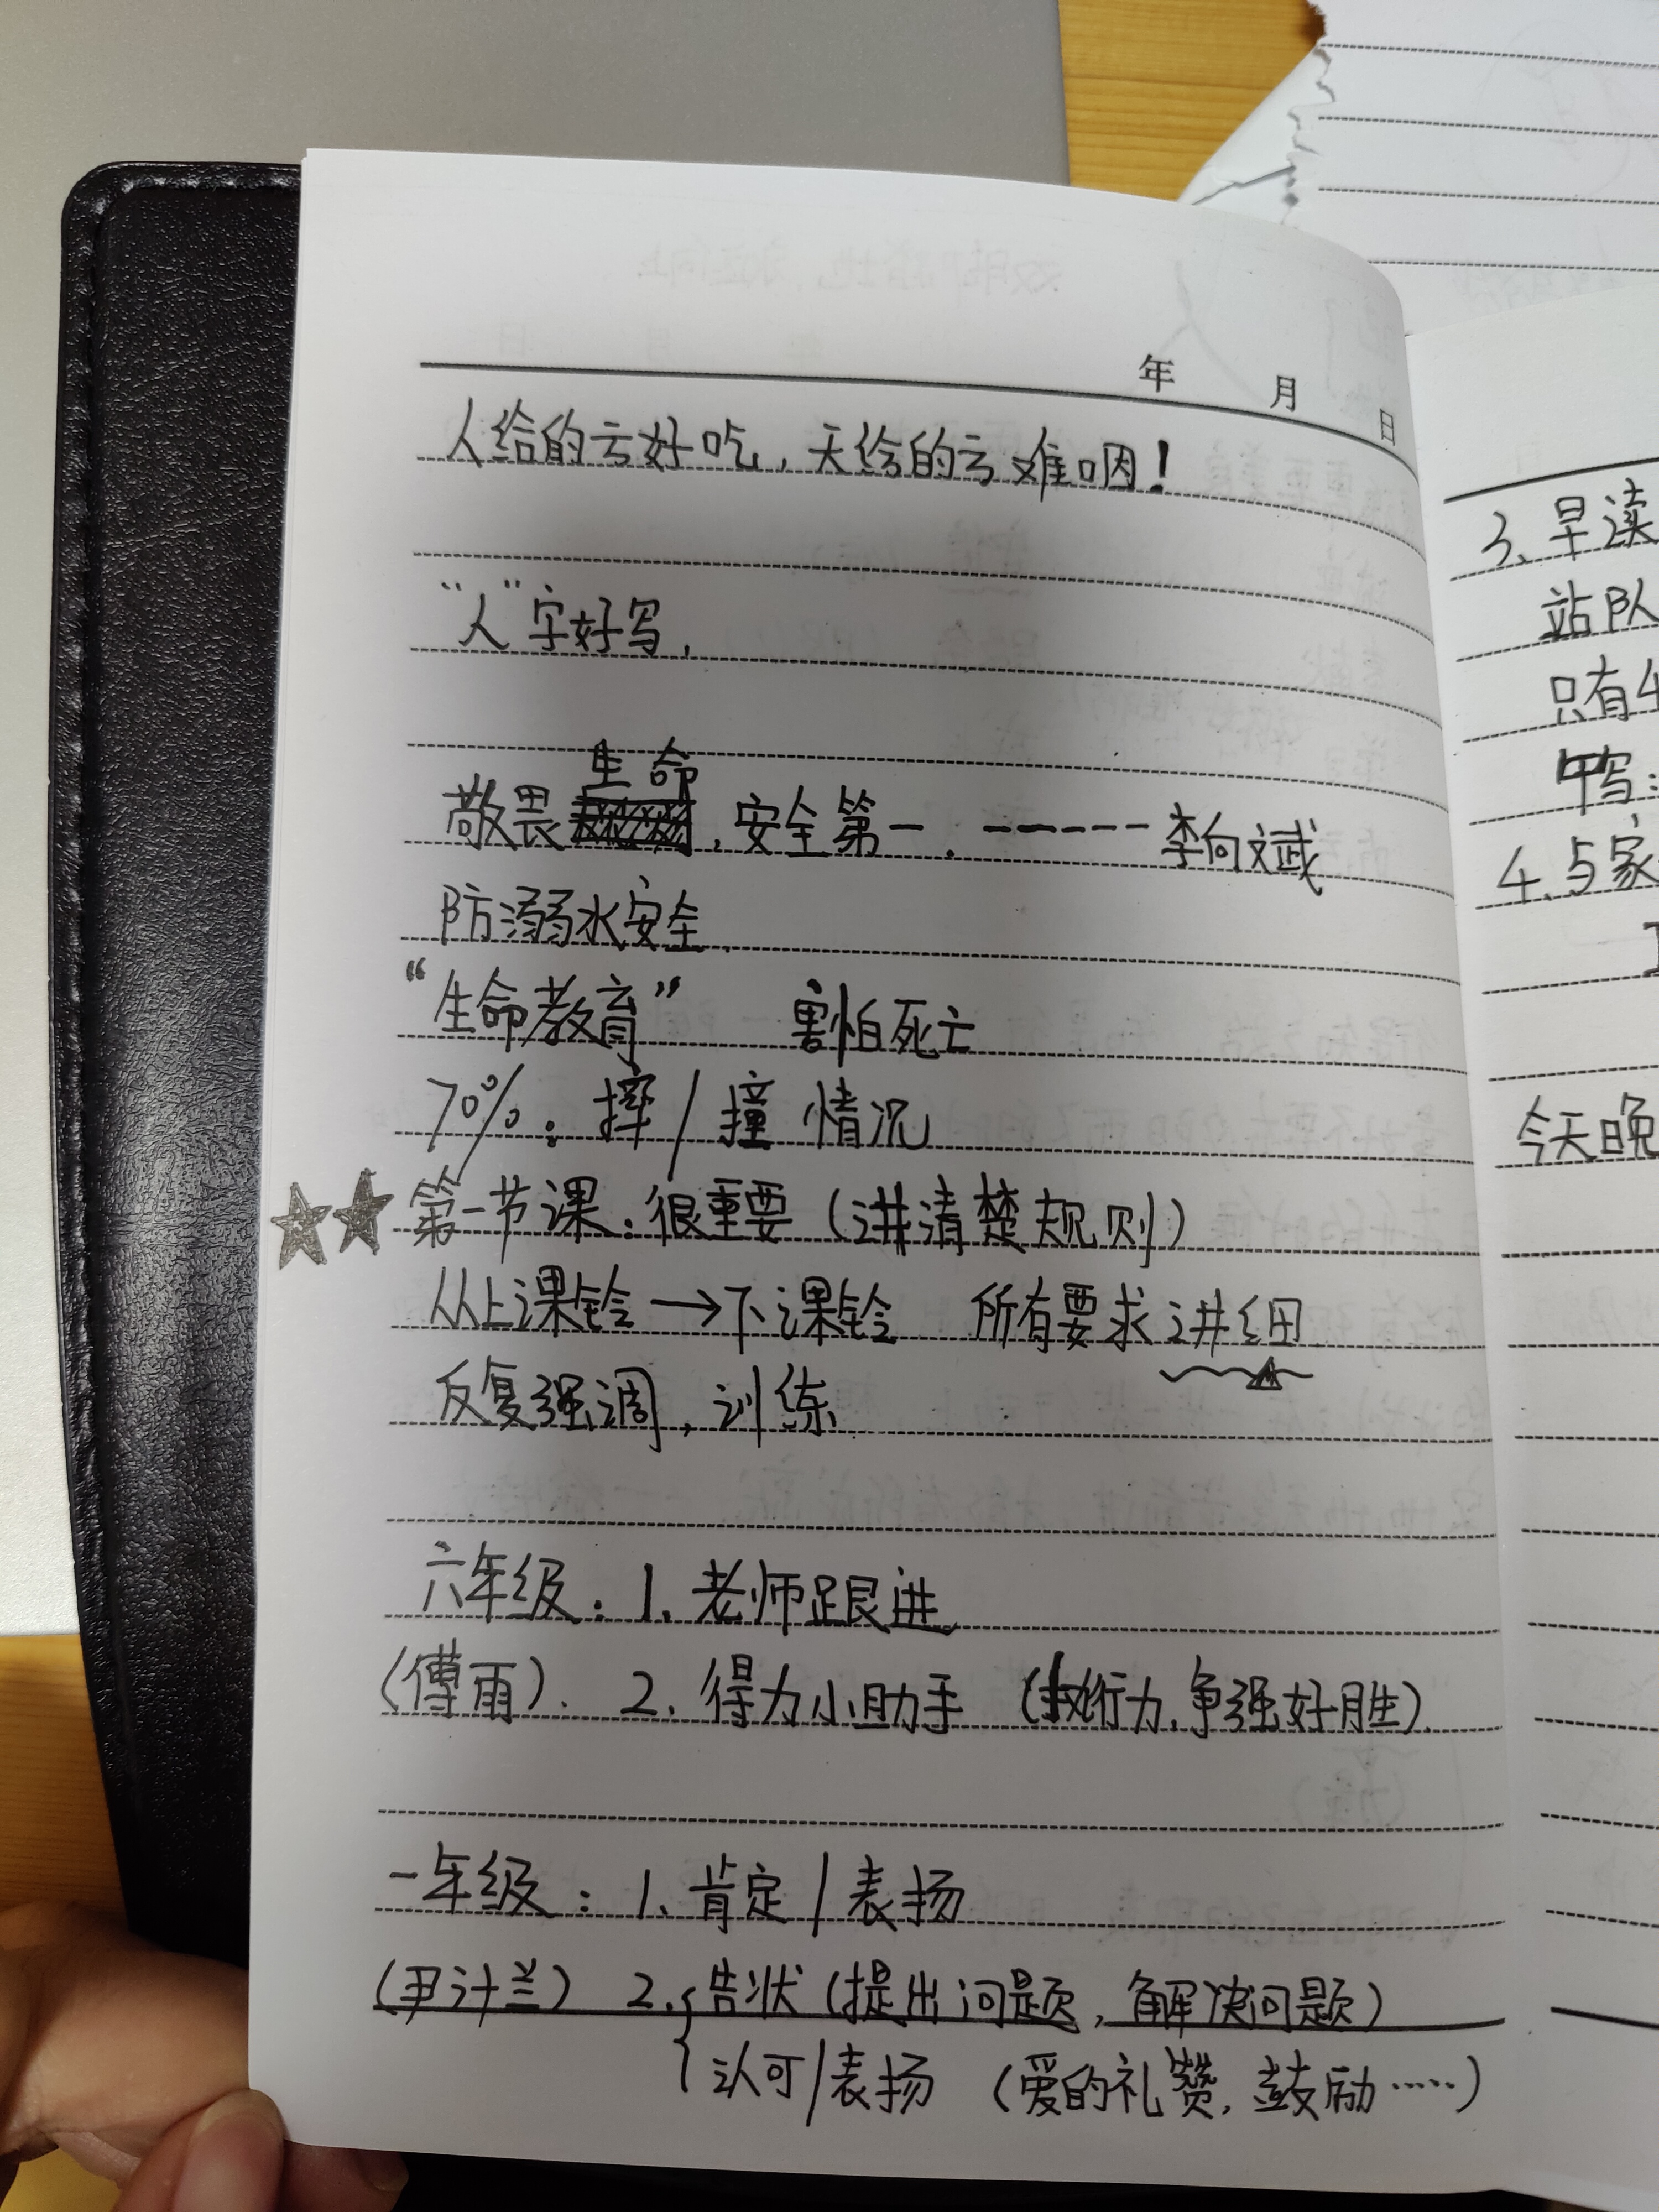 年 月 日
人给的亏好吃,天给的亏难咽!
“人”字好写,
生命
敬畏,安全第一. ------李向斌
防溺水安全.
“生命教育” 害怕死亡
70%:摔/撞 情况
第一节课:很重要(讲清楚规则)
从上课铃→下课铃 所有要求讲细
反复强调,训练.
六年级:1、老师跟进
(傅雨). 2.得为小助手 (执行力,争强好胜).
一年级:1、肯定/表扬
(尹计兰) 2.{告状(提出问题,解决问题)
认可/表扬 (爱的礼赞,鼓励……)
3、早读
站队
只有4
4、与家
今天晚